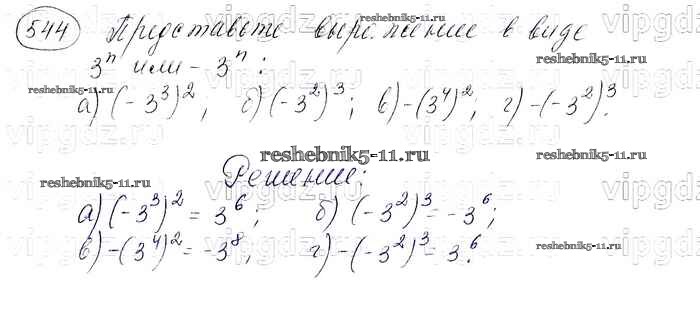 544 Представьте выражение в виде
3ⁿ или -3ⁿ:
а) (-3³)²; б) (-3²)³; в) -(3⁴)²; г) -(-3²)³.
Решение:
а) (-3³)² = 3⁶; б) (-3²)³ = -3⁶;
в) -(3⁴)² = -3⁸; г) -(-3²)³ = 3⁶.
reshebnik5-11.ru
reshebnik5-11.ru
reshebnik5-11.ru
reshebnik5-11.ru
reshebnik5-11.ru
reshebnik5-11.ru
reshebnik5-11.ru
vipgdz.com